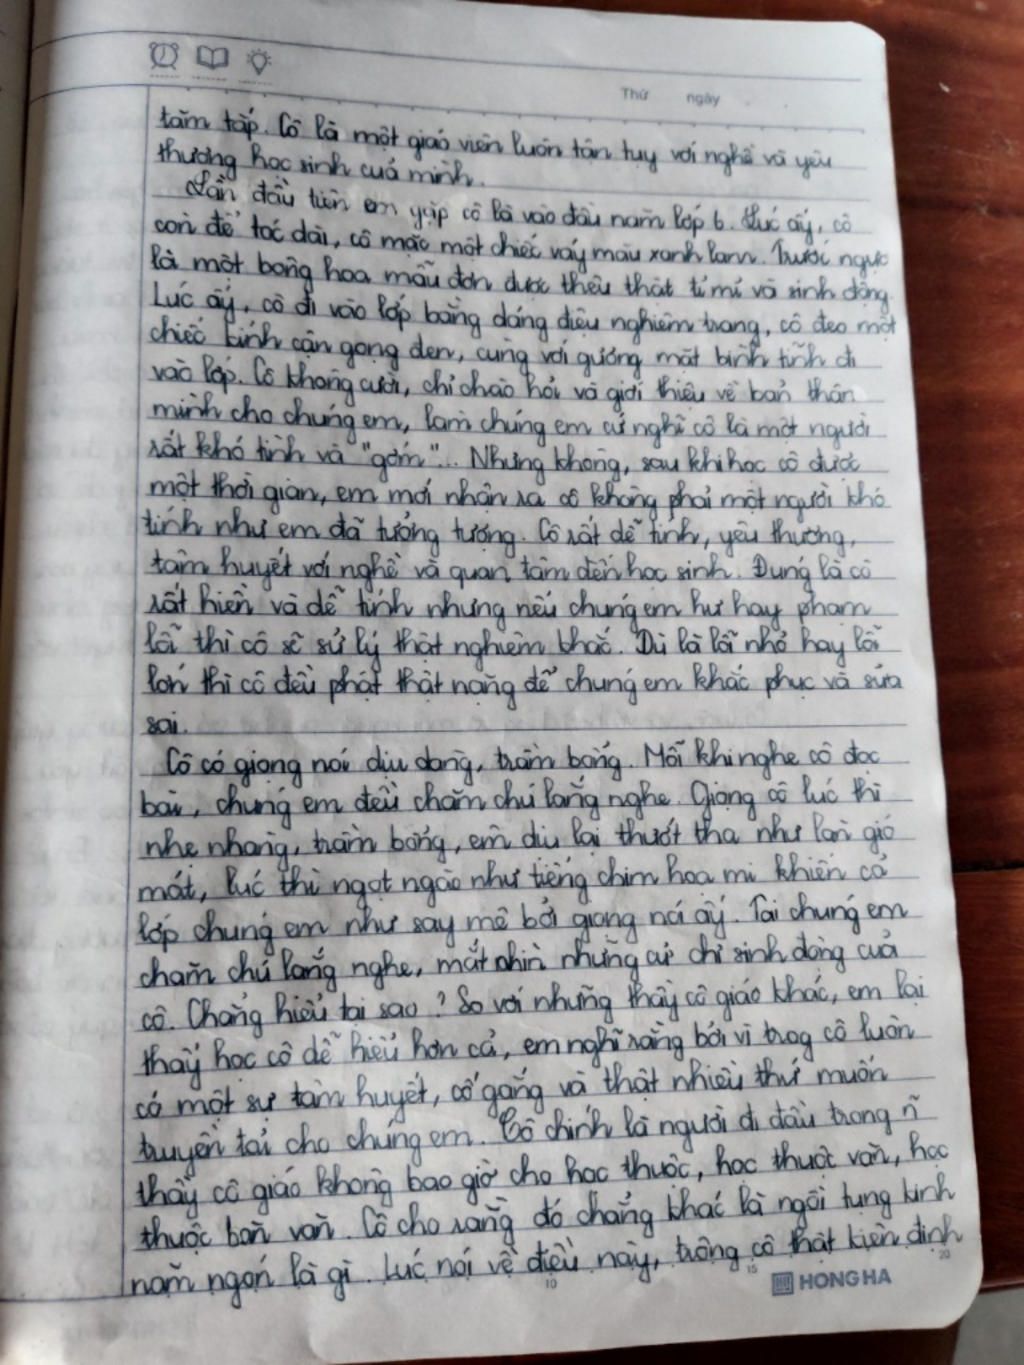 Thứ ngày
tăm tắp. Cô là một giáo viên luôn tận tụy với nghề và yêu
thương học sinh của mình.
Lần đầu tiên em gặp cô là vào đầu năm lớp 6. Lúc ấy, cô
còn để tóc dài, cô mặc một chiếc váy màu xanh lam. Trước ngực
là một bông hoa mẫu đơn được thêu thật tỉ mỉ và sinh động.
Lúc ấy, cô đi vào lớp bằng dáng điệu nghiêm trang, cô đeo một
chiếc kính cận gọng đen, cùng với gương mặt bình tĩnh đi
vào lớp. Cô không cười, chỉ chào hỏi và giới thiệu về bản thân
mình cho chúng em, làm chúng em cứ nghĩ cô là một người
rất khó tính và "gớm"... Nhưng không, sau khi học cô được
một thời gian, em mới nhận ra cô không phải một người khó
tính như em đã tưởng tượng. Cô rất dễ tính, yêu thương,
tâm huyết với nghề và quan tâm đến học sinh. Đúng là cô
rất hiền và dễ tính nhưng nếu chúng em hư hay phạm
lỗi thì cô sẽ sử lý thật nghiêm khắc. Dù là lỗi nhỏ hay lỗi
lớn thì cô đều phạt thật nặng để chúng em khắc phục và sửa
sai.
Cô có giọng nói dịu dàng, trầm bổng. Mỗi khi nghe cô đọc
bài, chúng em đều chăm chú lắng nghe. Giọng cô lúc thì
nhẹ nhàng, trầm bổng, êm dịu lại thướt tha như làn gió
mát, lúc thì ngọt ngào như tiếng chim họa mi khiến cả
lớp chúng em như say mê bởi giọng nói ấy. Tai chúng em
chăm chú lắng nghe, mắt nhìn những cử chỉ sinh động của
cô. Chẳng hiểu tại sao? So với những thầy cô giáo khác, em lại
thấy học cô dễ hiểu hơn cả, em nghĩ rằng bởi vì trog cô luôn
có một sự tâm huyết, cố gắng và thật nhiều thứ muốn
truyền tải cho chúng em. Cô chính là người đi đầu trong
thầy cô giáo không bao giờ cho học thuộc, học thuộc văn, học
thuộc bài văn. Cô cho rằng đó chẳng khác là ngồi tụng kinh
nằm ngọn là gì. Lúc nói về điều này, trông cô thật kiên định
10 15 20
HONG HA